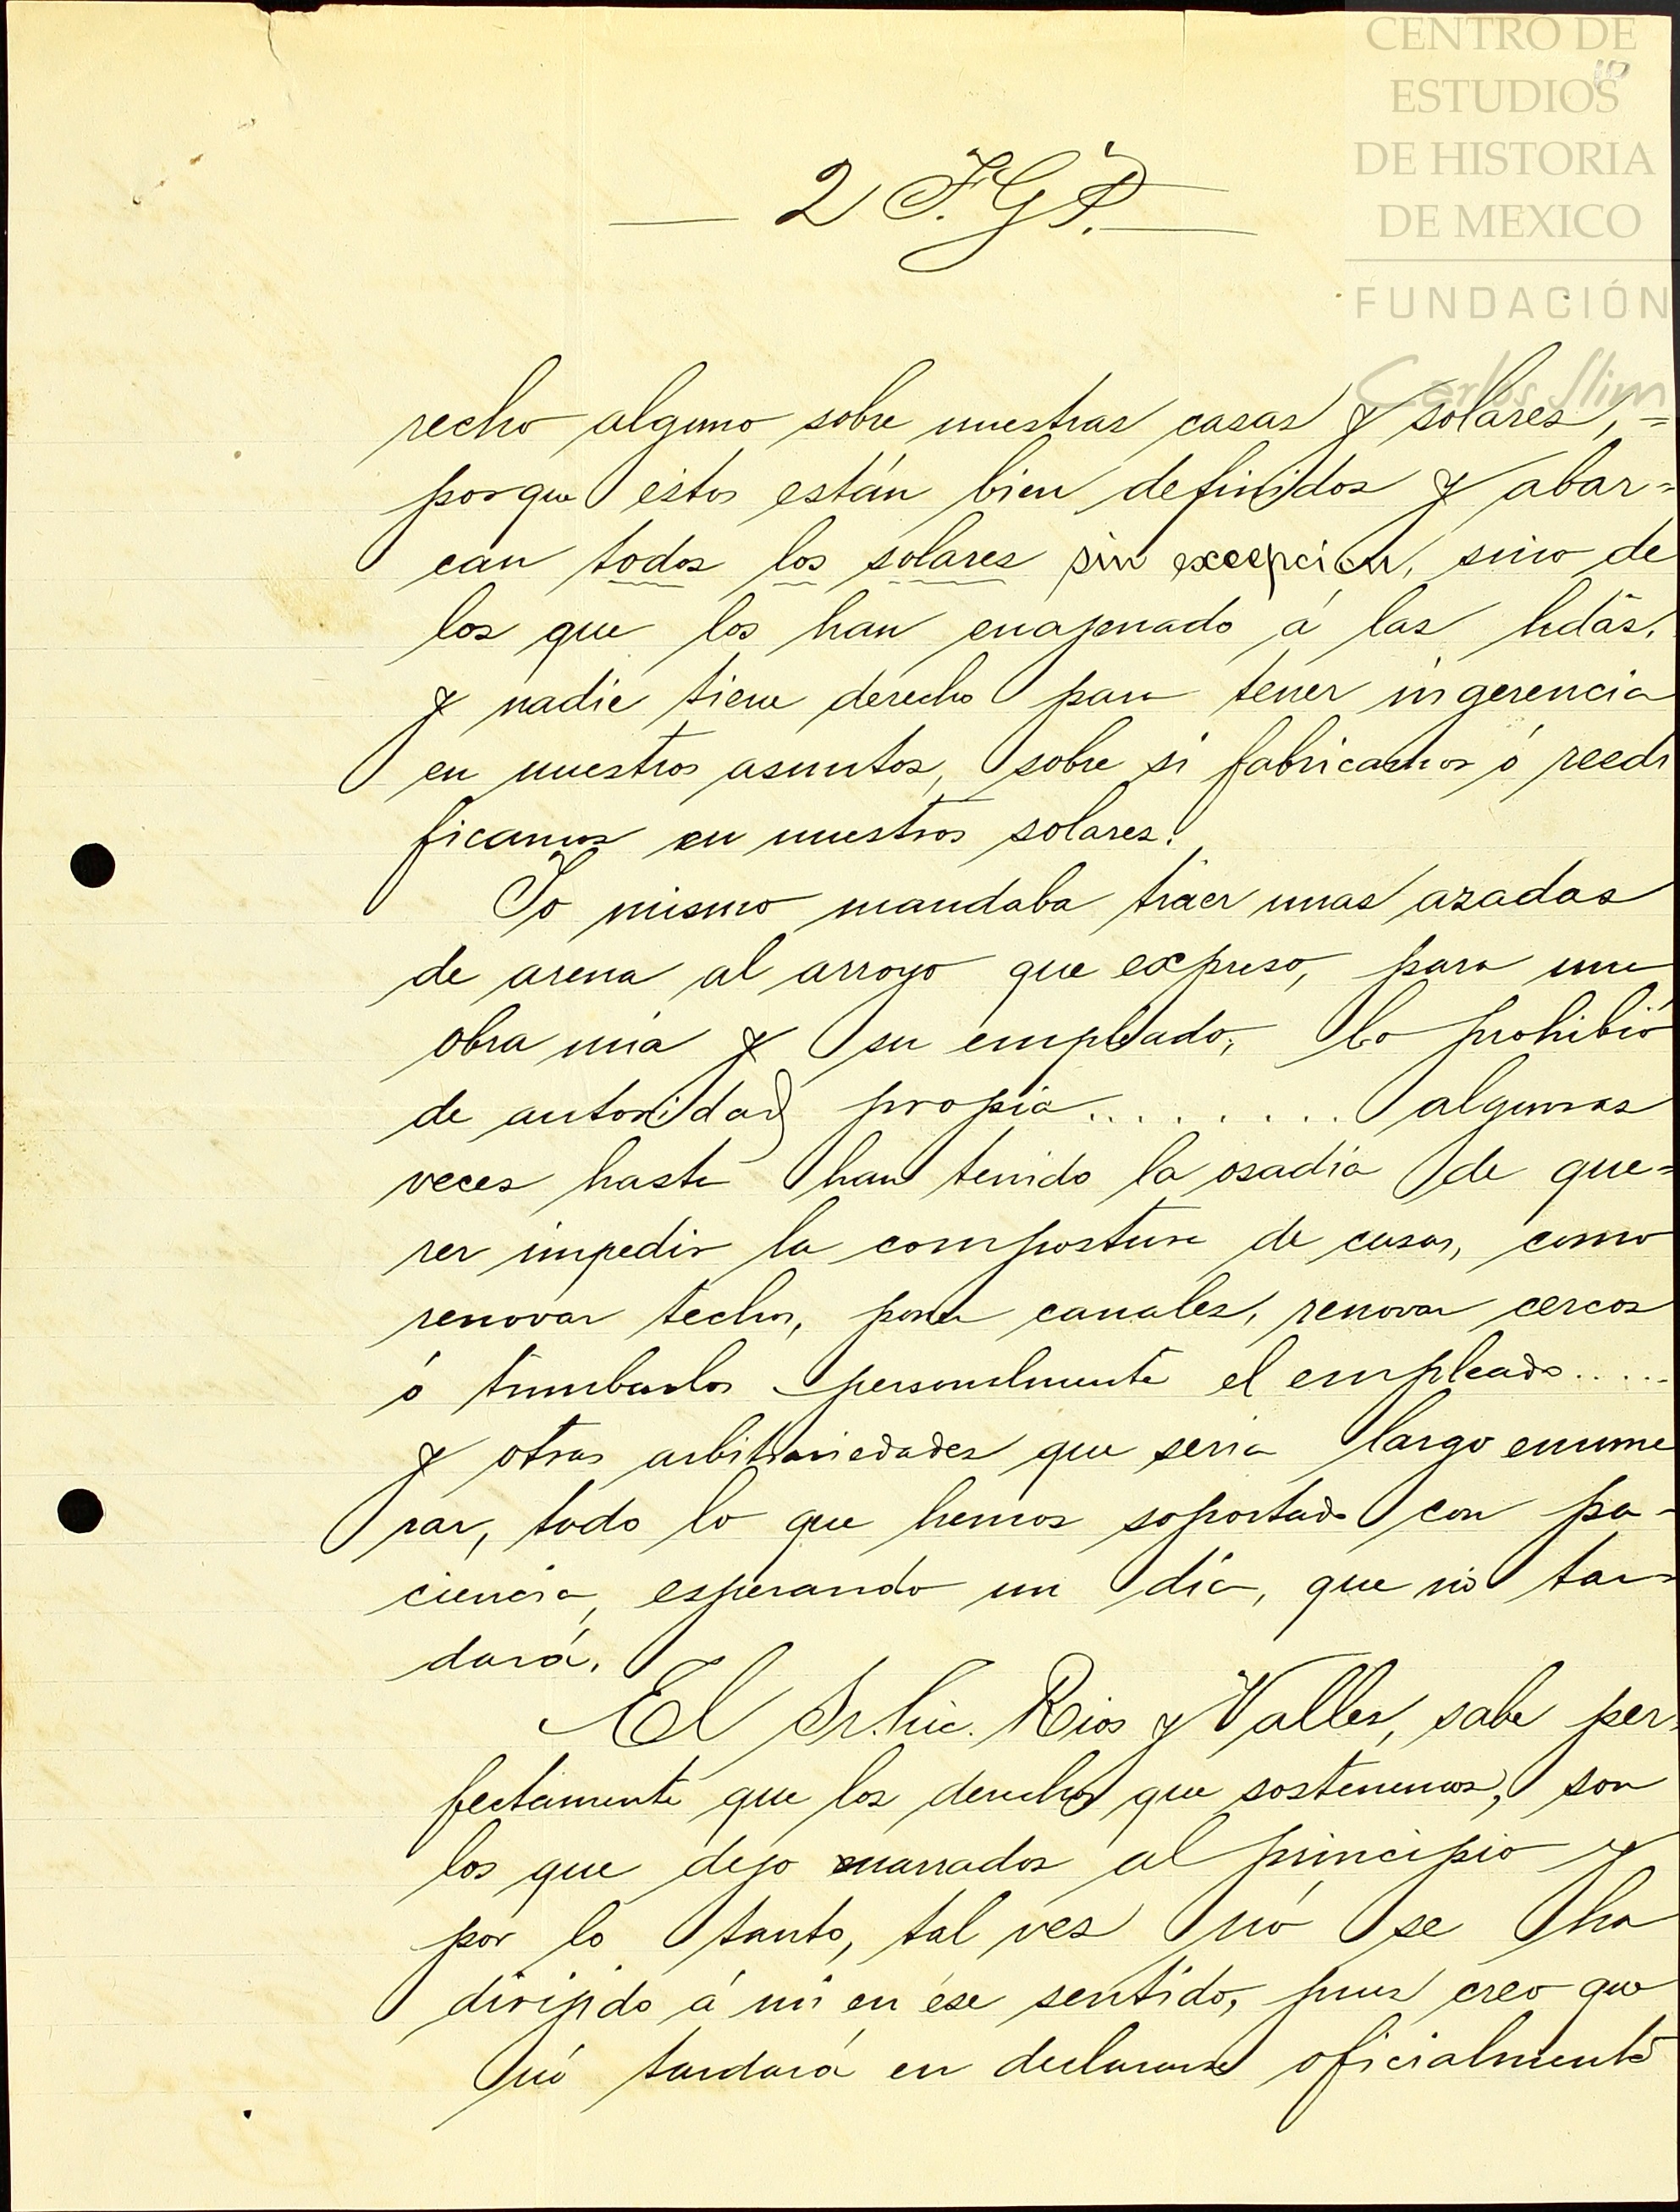 CENTRO DE
10
ESTUDIOS
DE HISTORIA
DE MEXICO
FUNDACIÓN
Carlos Slim
2 F.G.P.
recho alguno sobre nuestras casas y solares, =
porque éstos están bien definidos y abar=
can todos los solares sin excepción, sino de
los que los han enajenado á las hdas.
y nadie tiene derecho para tener ingerencia
en nuestros asuntos, sobre si fabricamos ó reedi
ficamos en nuestros solares.
Yo mismo mandaba traer unas azadas
de arena al arroyo que expreso, para una
obra mía y su empleado, lo prohibió
de autoridad propia......... algunas
veces hasta han tenido la osadía de que=
rer impedir la compostura de casas, como
renovar techos, poner canales, renovar cercos
ó tumbarlos personalmente el empleado.....
y otras arbitrariedades que seria largo enume
rar, todo lo que hemos soportado con pa-
ciencia, esperando un día, que nó tar=
dará.
El Sr. Lic. Rios y Valles, sabe per
fectamente que los derechos que sostenemos, son
los que dejo narrados al principio y
por lo tanto, tal ves nó se ha
dirijido á mi en ése sentido, pues creo que
nó tardará en declararse oficialmente